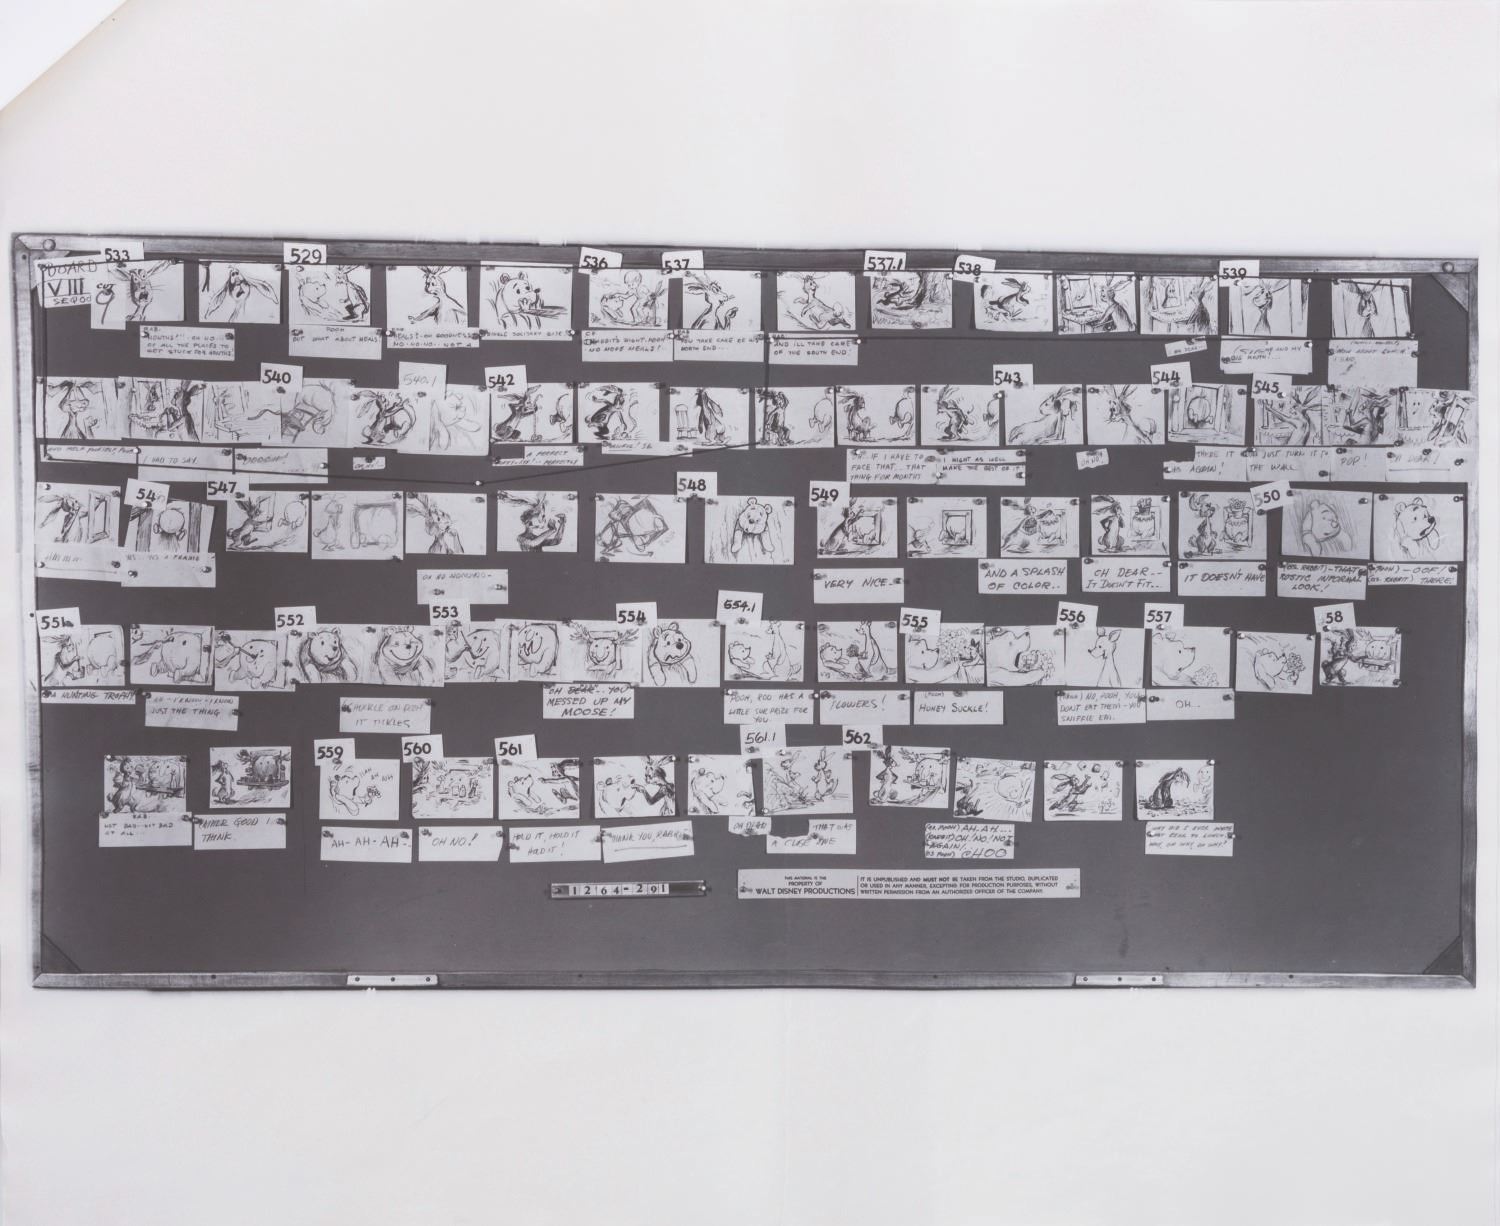 BOARD
VIII
SEQ 00
CUT
533
529
536
537
537.1
538
539
RAB.
MONTHS!!! - OH NO
OF ALL THE PLACES TO
GET STUCK FOR MONTHS.
POOH
BUT WHAT ABOUT MEALS
RAB
MEALS? - OH GOODNESS
NO-NO-NO-- NOT A
SINGLE SOLITARY BITE.
C.R.
RABBIT'S RIGHT, POOH
NO MORE MEALS!
RAB.
YOU TAKE CARE OF HIS
NORTH END...
RAB.
AND I'LL TAKE CARE
OF THE SOUTH END!
OH DEAR--
ME AND MY
BIG MOUTH...
HOW ABOUT LUNCH
I SAID
540
540.1
542
543
544
545
AND HELP YOURSELF POOH
I HAD TO SAY
A PERFECT
OH. IF I HAVE TO
FACE THAT... THAT
THING FOR MONTHS
I MIGHT AS WELL
MAKE THE BEST OF IT
OH NO!
THERE IT
IS AGAIN!
JUST TURN IT TO
THE WALL
POP!
OH DEAR!
54
547
548
549
550
HMMM--
YES - YES A FRAME
OH NO HONKING-
VERY NICE..
AND A SPLASH
OF COLOR..
OH DEAR--
IT DOESN'T FIT..
IT DOESN'T HAVE
(OS. RABBIT) - THAT
RUSTIC INFORMAL
LOOK!
(POOH) - OOF!
(OS. RABBIT) THERE!
551
552
553
554
554.1
555
556
557
58
A HUNTING TROPHY
AH - I KNOW - I KNOW
JUST THE THING
(CHUCKLE ON POOH)
IT TICKLES
OH DEAR... YOU
MESSED UP MY
MOOSE!
POOH, ROO HAS A
LITTLE SURPRIZE FOR
YOU.
FLOWERS!
(POOH)
HONEY SUCKLE!
(KANGA) NO, POOH, YOU
DON'T EAT THEM - YOU
SNIFFLE EM.
OH...
559
560
561
561.1
562
AH
AH
AH
RAB.
NOT BAD - NOT BAD
AT ALL.
RATHER GOOD I
THINK.
AH-AH-AH-..
OH NO!
HOLD IT, HOLD IT
HOLD IT!
THANK YOU, RABBIT
OH DEAR
THAT WAS
A CLOSE ONE
(OS. POOH) AH-AH...
(RABBIT) OH! NO! NOT
AGAIN!
(OS POOH) CHOO
WHY DID I EVER INVITE
THAT BEAR TO LUNCH.
WHY, OH WHY, OH WHY!
1264-291
THIS MATERIAL IS THE
PROPERTY OF
WALT DISNEY PRODUCTIONS
IT IS UNPUBLISHED AND MUST NOT BE TAKEN FROM THE STUDIO, DUPLICATED
OR USED IN ANY MANNER, EXCEPTING FOR PRODUCTION PURPOSES, WITHOUT
WRITTEN PERMISSION FROM AN AUTHORIZED OFFICER OF THE COMPANY.